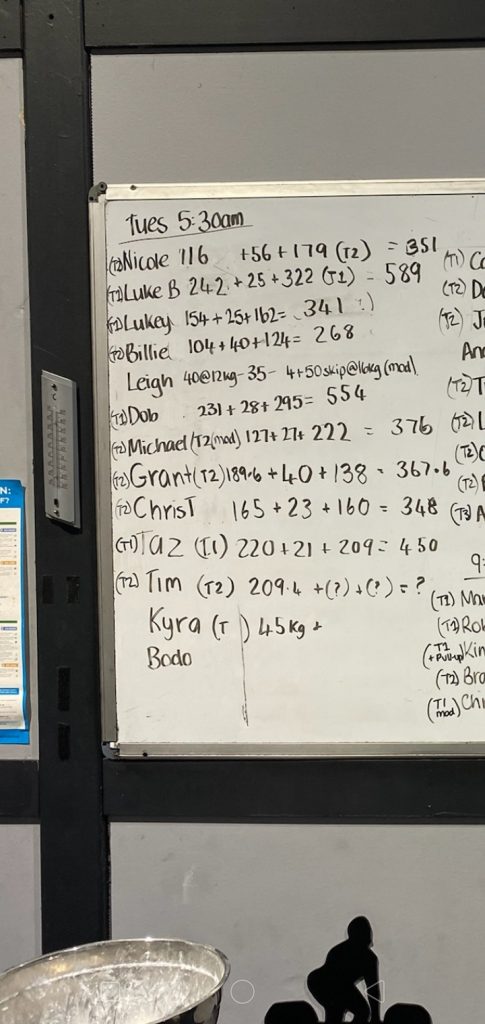 Tues 5:30am
(T2) Nicole 116 +56+179 (T2) = 351
(T1) Luke B 242 +25+322 (T1) = 589
(T2) Lukey 154+25+162= 341
(T2) Billie 104+40+124= 268
Leigh 40@12kg-35- 4+50skip@16kg (mod)
(T1) Dob 231+28+295= 554
(T2) Michael (T2(mod) 127+27+ 222 = 376
(T2) Grant (T2) 189.6 +40+138 = 367.6
(T2) ChrisT 165+23+160 = 348
(T1) Taz (T1) 220+21+209= 450
(T2) Tim (T2) 209.4 +(?)+(?) = ?
Kyra (T ) 45kg +
Bodo
(T1) Co
(T2) Do
(T2) J
An
(T2) T
(T2) L
(T2)
(T2)
(T3) A
9:
(T2) Ma
(T1) Ro
(T1 + Pullup) Kin
(T2) Bro
(T1 mod) Chr
N:
F?